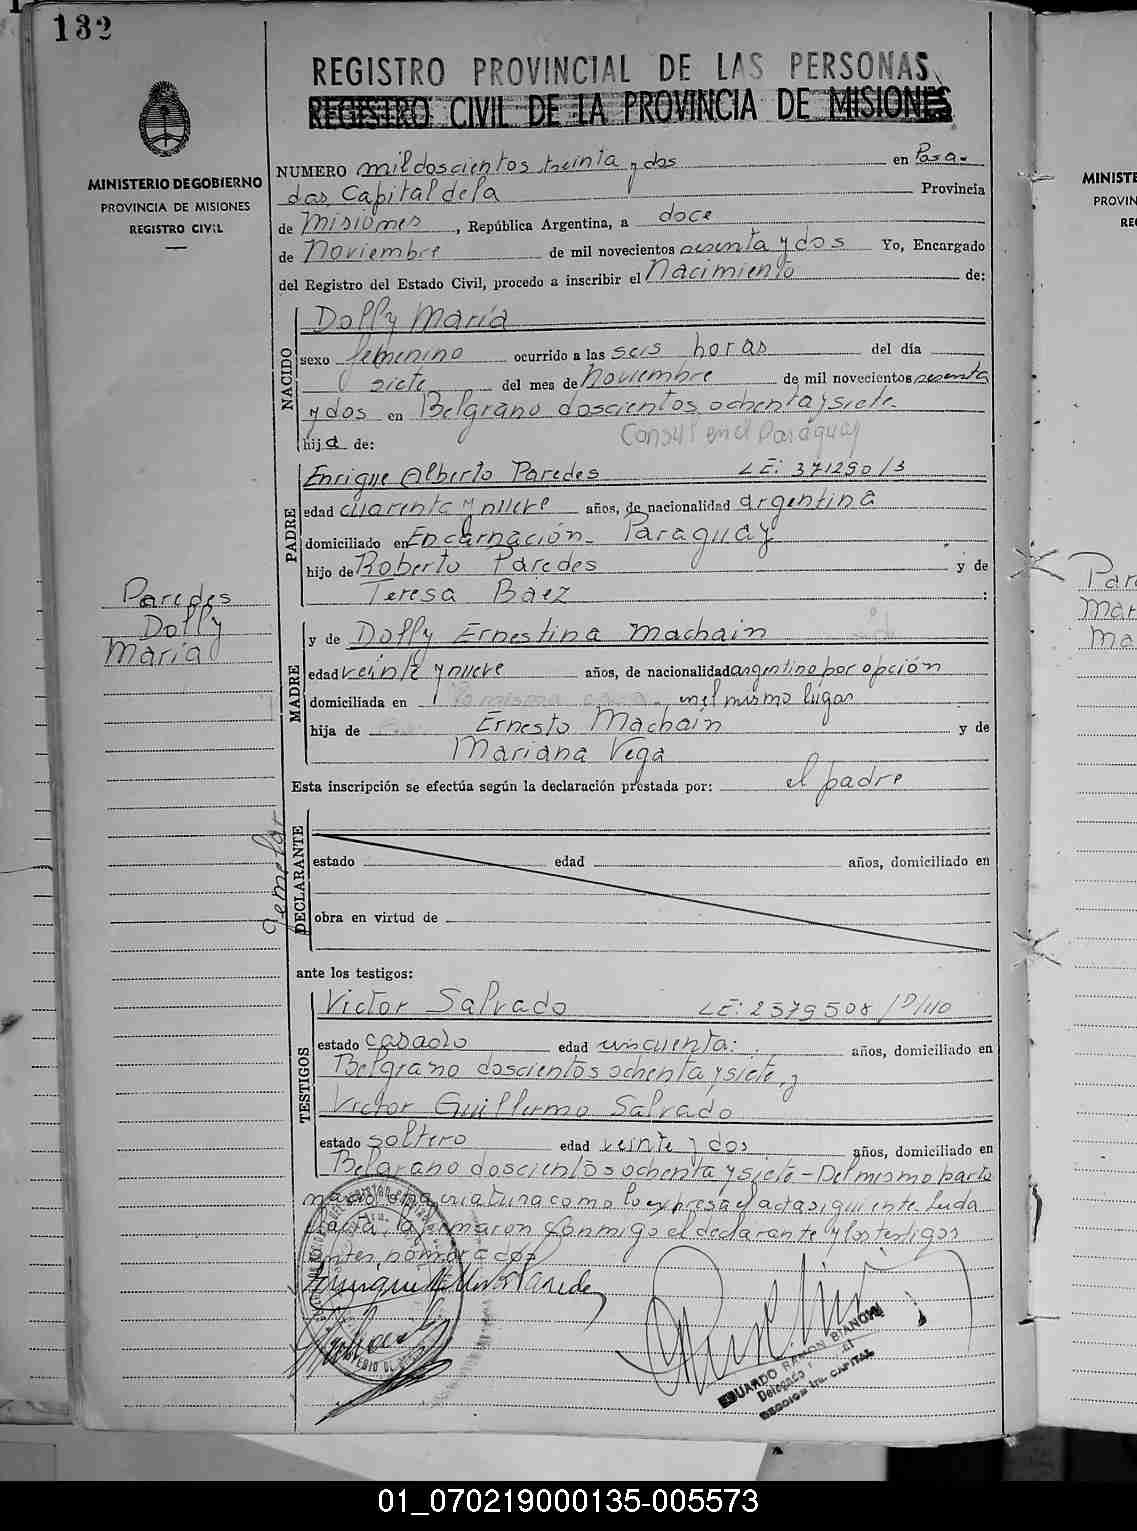 132
REGISTRO PROVINCIAL DE LAS PERSONAS
REGISTRO CIVIL DE LA PROVINCIA DE MISIONES
MINISTERIO DE GOBIERNO
PROVINCIA DE MISIONES
REGISTRO CIVIL
NUMERO mil doscientos treinta y dos en Posa-
das Capital de la Provincia
de Misiones, República Argentina, a doce
de Noviembre de mil novecientos sesenta y dos Yo, Encargado
del Registro del Estado Civil, procedo a inscribir el Nacimiento de:
NACIDO
Dolly María
sexo femenino ocurrido a las seis horas del día
siete del mes de Noviembre de mil novecientos sesenta
y dos en Belgrano doscientos ochenta y siete.
hija de: Consul en el Paraguay
PADRE
Enrique Alberto Paredes LE: 371290/3
edad cuarenta y nueve años, de nacionalidad argentina
domiciliado en Encarnación - Paraguay
hijo de Roberto Paredes y de
Teresa Baez :
Paredes
Dolly
María
MADRE
y de Dolly Ernestina Machain
edad veinte y nueve años, de nacionalidad argentina por opción
domiciliada en en el mismo lugar
hija de Ernesto Machain y de
Mariana Vega
Esta inscripción se efectúa según la declaración prestada por: el padre
Gemelar
DECLARANTE
estado edad años, domiciliado en
obra en virtud de
ante los testigos:
TESTIGOS
Victor Salvado LE: 2579508/D/40
estado casado edad cincuenta: años, domiciliado en
Belgrano doscientos ochenta y siete, y
Victor Guillermo Salvado
estado soltero edad veinte y dos años, domiciliado en
Belgrano doscientos ochenta y siete - Del mismo parto
nació otra criatura como lo expresa el acta siguiente. Leida
el acta, la firmaron conmigo el declarante y los testigos
antes nombrados
EDUARDO RAMON BIANCHI
Delegado
SECCION 1ra. CAPITAL
MINISTE
PROVIN
RE
Pare
Mar
Ma
01_070219000135-005573